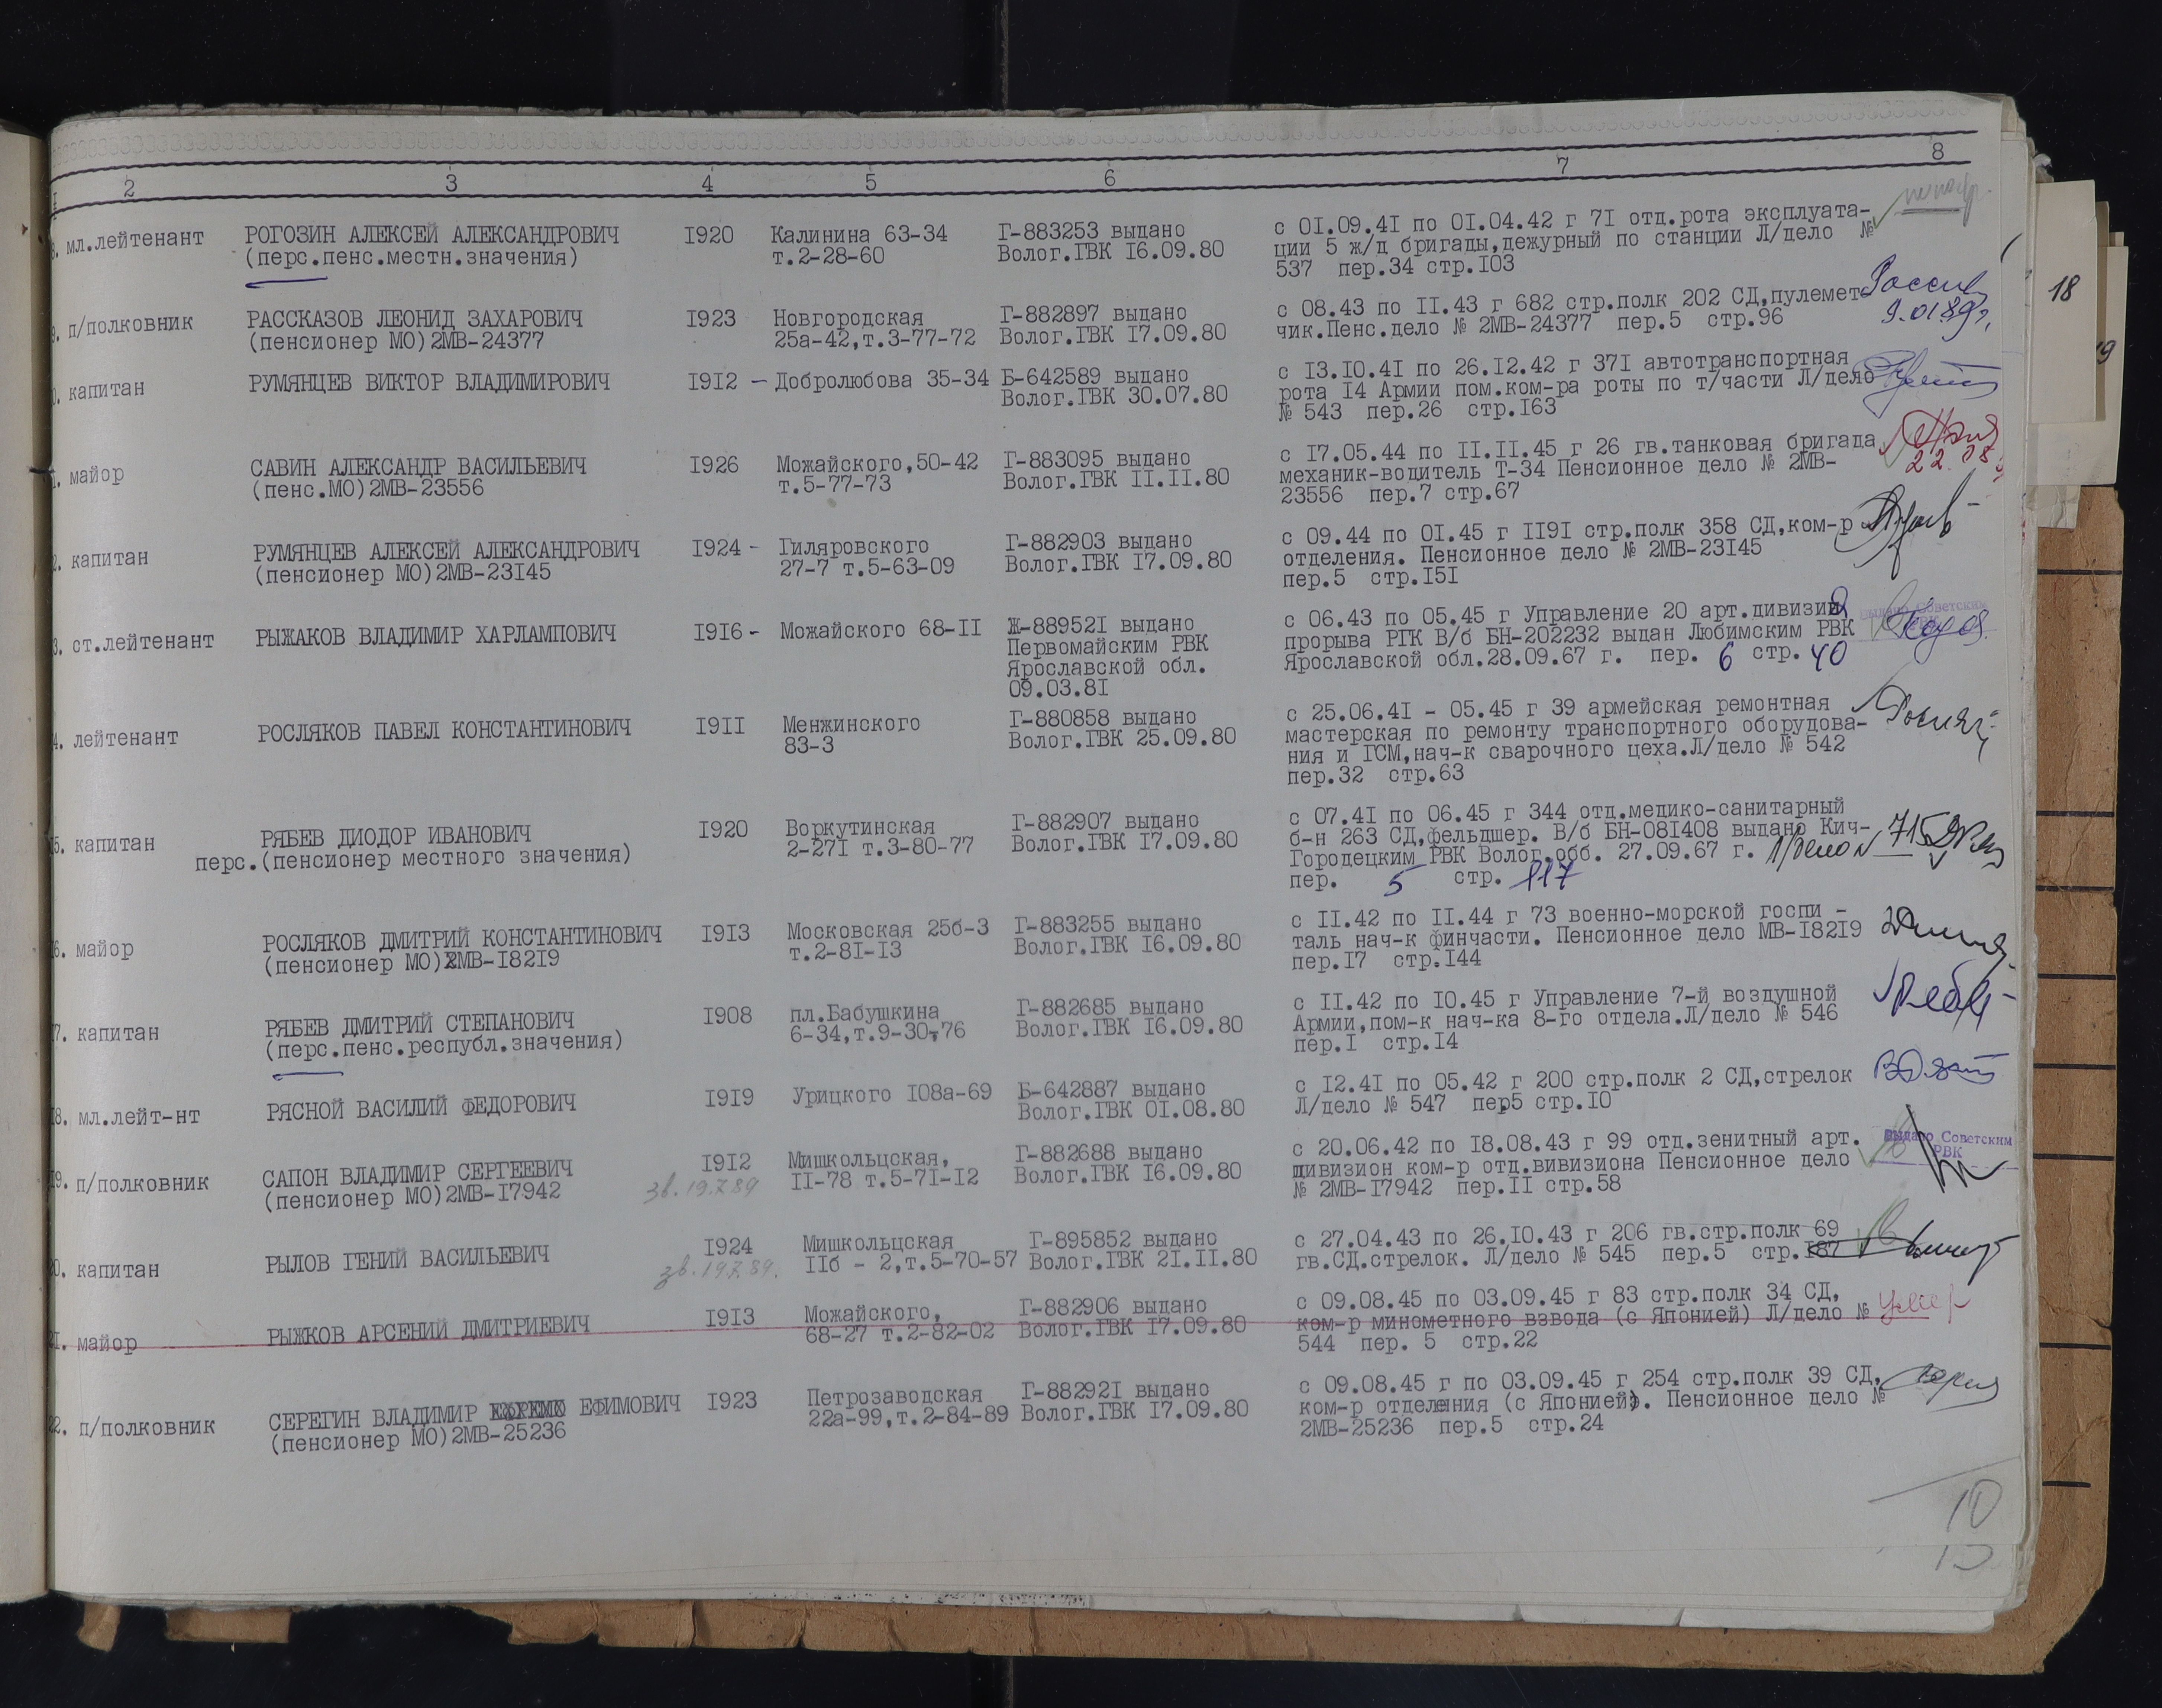 2 3 4 5 6 7 8
8. мл.лейтенант РОГОЗИН АЛЕКСЕЙ АЛЕКСАНДРОВИЧ I920 Калинина 63-34 Г-883253 выдано с 0I.09.4I по 0I.04.42 г 7I отд.рота эксплуата-
(перс.пенс.местн.значения) т.2-28-60 Волог.ГВК I6.09.80 ции 5 ж/д бригады,дежурный по станции Л/дело №
537 пер.34 стр.I03
9. п/полковник РАССКАЗОВ ЛЕОНИД ЗАХАРОВИЧ I923 Новгородская Г-882897 выдано с 08.43 по II.43 г 682 стр.полк 202 СД,пулемет-
(пенсионер МО)2МВ-24377 25а-42,т.3-77-72 Волог.ГВК I7.09.80 чик.Пенс.дело № 2МВ-24377 пер.5 стр.96 9.01.89г.
0. капитан РУМЯНЦЕВ ВИКТОР ВЛАДИМИРОВИЧ I9I2 – Добролюбова 35-34 Б-642589 выдано с I3.I0.4I по 26.I2.42 г 37I автотранспортная
Волог.ГВК 30.07.80 рота I4 Армии пом.ком-ра роты по т/части Л/дело
№ 543 пер.26 стр.I63
1. майор САВИН АЛЕКСАНДР ВАСИЛЬЕВИЧ I926 Можайского,50-42 Г-883095 выдано с I7.05.44 по II.II.45 г 26 гв.танковая бригада
(пенс.МО)2МВ-23556 т.5-77-73 Волог.ГВК II.II.80 механик-водитель Т-34 Пенсионное дело № 2МВ- 22.08
23556 пер.7 стр.67
2. капитан РУМЯНЦЕВ АЛЕКСЕЙ АЛЕКСАНДРОВИЧ I924 - Гиляровского Г-882903 выдано с 09.44 по 0I.45 г II9I стр.полк 358 СД,ком-р
(пенсионер МО)2МВ-23I45 27-7 т.5-63-09 Волог.ГВК I7.09.80 отделения. Пенсионное дело № 2МВ-23I45
пер.5 стр.I5I
3. ст.лейтенант РЫЖАКОВ ВЛАДИМИР ХАРЛАМПОВИЧ I9I6 - Можайского 68-II Ж-88952I выдано с 06.43 по 05.45 г Управление 20 арт.дивизии выдано Советским
Первомайским РВК прорыва РГК В/б БН-202232 выдан Любимским РВК
Ярославской обл. Ярославской обл.28.09.67 г. пер. 6 стр. 40
09.03.8I
4. лейтенант РОСЛЯКОВ ПАВЕЛ КОНСТАНТИНОВИЧ I9II Менжинского Г-880858 выдано с 25.06.4I - 05.45 г 39 армейская ремонтная
83-3 Волог.ГВК 25.09.80 мастерская по ремонту транспортного оборудова-
ния и ГСМ,нач-к сварочного цеха.Л/дело № 542
пер.32 стр.63
15. капитан РЯБЕВ ДИОДОР ИВАНОВИЧ I920 Воркутинская Г-882907 выдано с 07.4I по 06.45 г 344 отд.медико-санитарный
перс.(пенсионер местного значения) 2-27I т.3-80-77 Волог.ГВК I7.09.80 б-н 263 СД,фельдшер. В/б БН-08I408 выдано Кич-
Городецким РВК Волог.обб. 27.09.67 г. Л/дело № 715
пер. 5 стр. 117
16. майор РОСЛЯКОВ ДМИТРИЙ КОНСТАНТИНОВИЧ I9I3 Московская 25б-3 Г-883255 выдано с II.42 по II.44 г 73 военно-морской госпи -
(пенсионер МО)2МВ-I82I9 т.2-8I-I3 Волог.ГВК I6.09.80 таль нач-к финчасти. Пенсионное дело МВ-I82I9
пер.I7 стр.I44
17. капитан РЯБЕВ ДМИТРИЙ СТЕПАНОВИЧ I908 пл.Бабушкина Г-882685 выдано с II.42 по I0.45 г Управление 7-й воздушной
(перс.пенс.республ.значения) 6-34,т.9-30-76 Волог.ГВК I6.09.80 Армии,пом-к нач-ка 8-го отдела.Л/дело № 546
пер.I стр.I4
18. мл.лейт-нт РЯСНОЙ ВАСИЛИЙ ФЕДОРОВИЧ I9I9 Урицкого I08а-69 Б-642887 выдано с I2.4I по 05.42 г 200 стр.полк 2 СД,стрелок
Волог.ГВК 0I.08.80 Л/дело № 547 пер5 стр.I0
19. п/полковник САПОН ВЛАДИМИР СЕРГЕЕВИЧ I9I2 Мишкольцская, Г-882688 выдано с 20.06.42 по I8.08.43 г 99 отд.зенитный арт. выдано Советским
(пенсионер МО)2МВ-I7942 зв. 19.7.89 II-78 т.5-7I-I2 Волог.ГВК I6.09.80 дивизион ком-р отд.вивизиона Пенсионное дело РВК
№ 2МВ-I7942 пер.II стр.58
20. капитан РЫЛОВ ГЕНИЙ ВАСИЛЬЕВИЧ I924 Мишкольцская Г-895852 выдано с 27.04.43 по 26.I0.43 г 206 гв.стр.полк 69
зв. 19.7.89. IIб - 2,т.5-70-57 Волог.ГВК 2I.II.80 гв.СД.стрелок. Л/дело № 545 пер.5 стр.I87
21. майор РЫЖКОВ АРСЕНИЙ ДМИТРИЕВИЧ I9I3 Можайского, Г-882906 выдано с 09.08.45 по 03.09.45 г 83 стр.полк 34 СД,
68-27 т.2-82-02 Волог.ГВК I7.09.80 ком-р минометного взвода (с Японией) Л/дело № умер
544 пер. 5 стр.22
22. п/полковник СЕРЕГИН ВЛАДИМИР ЕФИМОВИЧ I923 Петрозаводская Г-88292I выдано с 09.08.45 г по 03.09.45 г 254 стр.полк 39 СД,
(пенсионер МО)2МВ-25236 22а-99,т.2-84-89 Волог.ГВК I7.09.80 ком-р отделения (с Японией). Пенсионное дело №
2МВ-25236 пер.5 стр.24
10
18